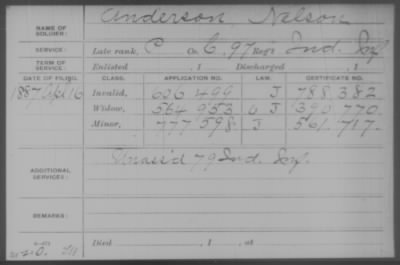 NAME OF SOLDIER: Anderson, Nelson
SERVICE: Late rank, C Co. C, 97 Reg't Ind. Inf
TERM OF SERVICE: Enlisted , 1 Discharged , 1
DATE OF FILING. CLASS. APPLICATION NO. LAW. CERTIFICATE NO.
1887 Apr 16 Invalid, 606 499 J 788 382
Widow, 564 953 J 390 770
Minor, 777 598 J 561 717
ADDITIONAL SERVICES: Unass'd 79 Ind. Inf.
REMARKS:
Died , 1 , at